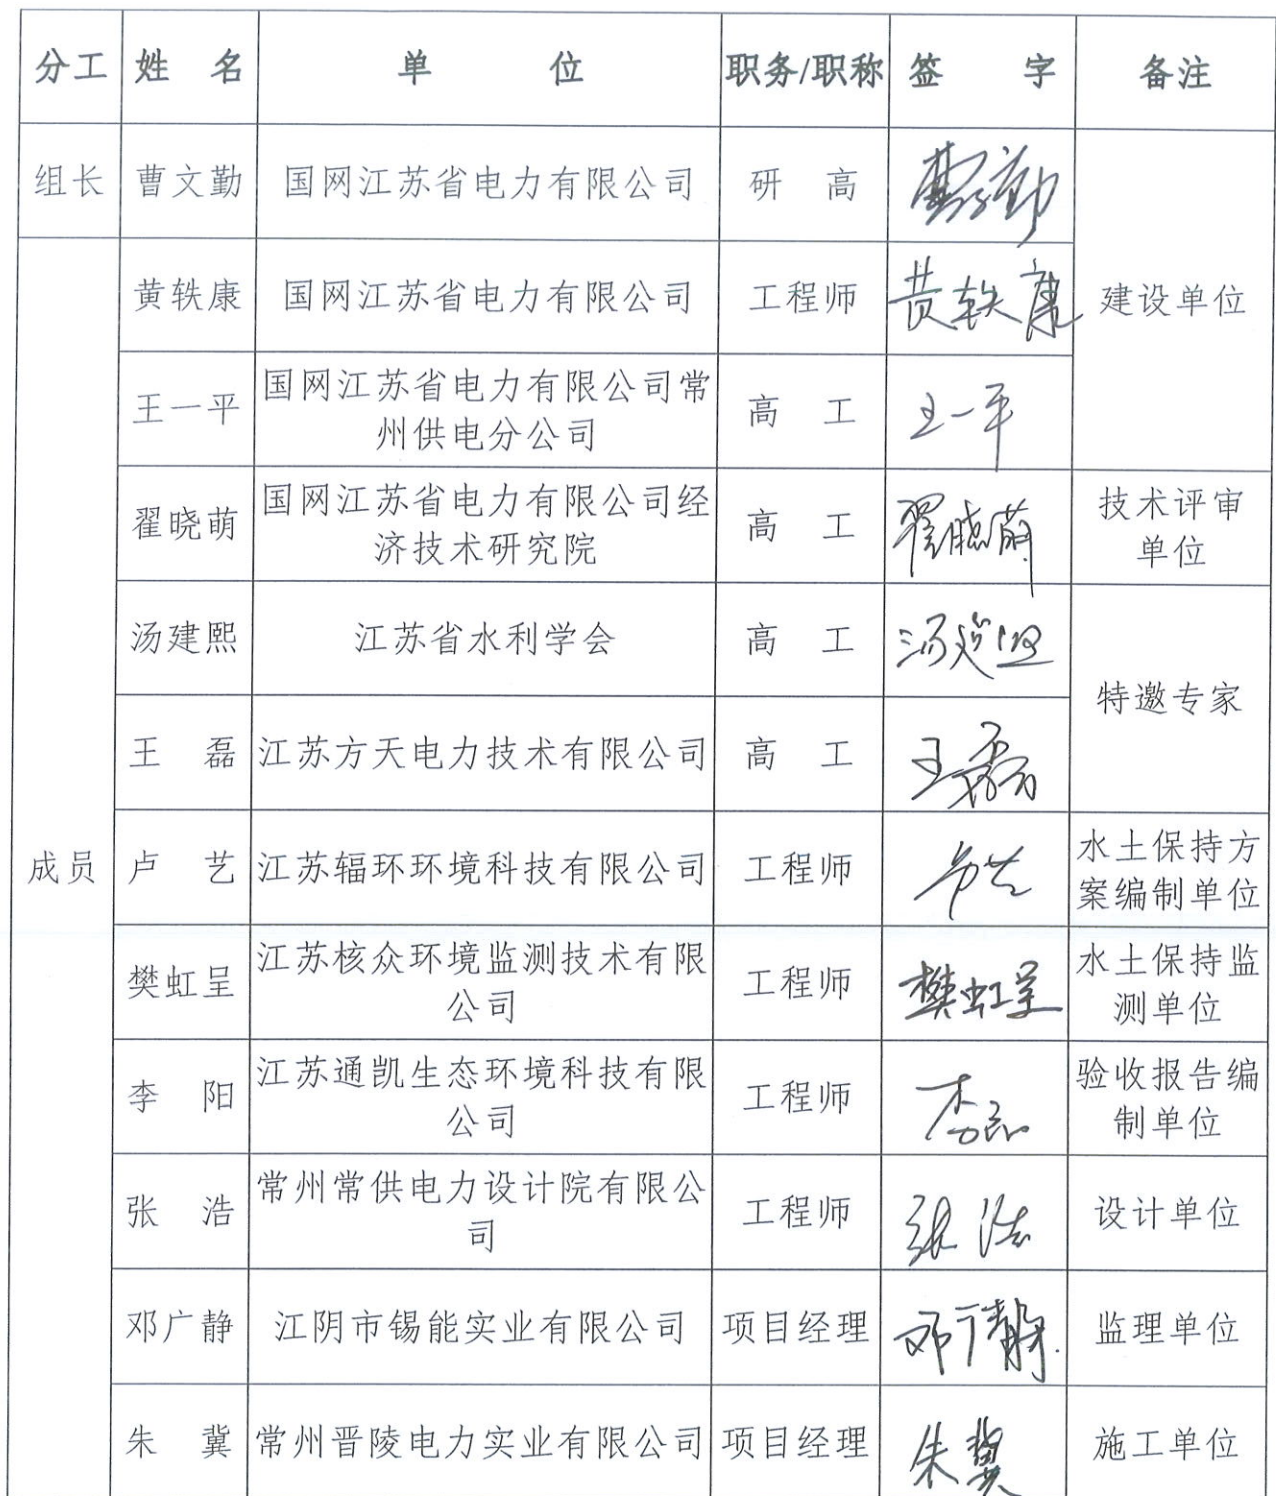 分工 姓 名 单 位 职务/职称 签 字 备注
组长 曹文勤 国网江苏省电力有限公司 研 高 曹文勤
黄轶康 国网江苏省电力有限公司 工程师 黄轶康 建设单位
王一平 国网江苏省电力有限公司常
州供电分公司 高 工 王一平
翟晓萌 国网江苏省电力有限公司经
济技术研究院 高 工 翟晓萌 技术评审
单位
汤建熙 江苏省水利学会 高 工 汤建熙
特邀专家
王 磊 江苏方天电力技术有限公司 高 工 王磊
成员 卢 艺 江苏辐环环境科技有限公司 工程师 卢艺 水土保持方
案编制单位
樊虹呈 江苏核众环境监测技术有限
公司 工程师 樊虹呈 水土保持监
测单位
李 阳 江苏通凯生态环境科技有限
公司 工程师 李阳 验收报告编
制单位
张 浩 常州常供电力设计院有限公
司 工程师 张浩 设计单位
邓广静 江阴市锡能实业有限公司 项目经理 邓广静 监理单位
朱 冀 常州晋陵电力实业有限公司 项目经理 朱冀 施工单位